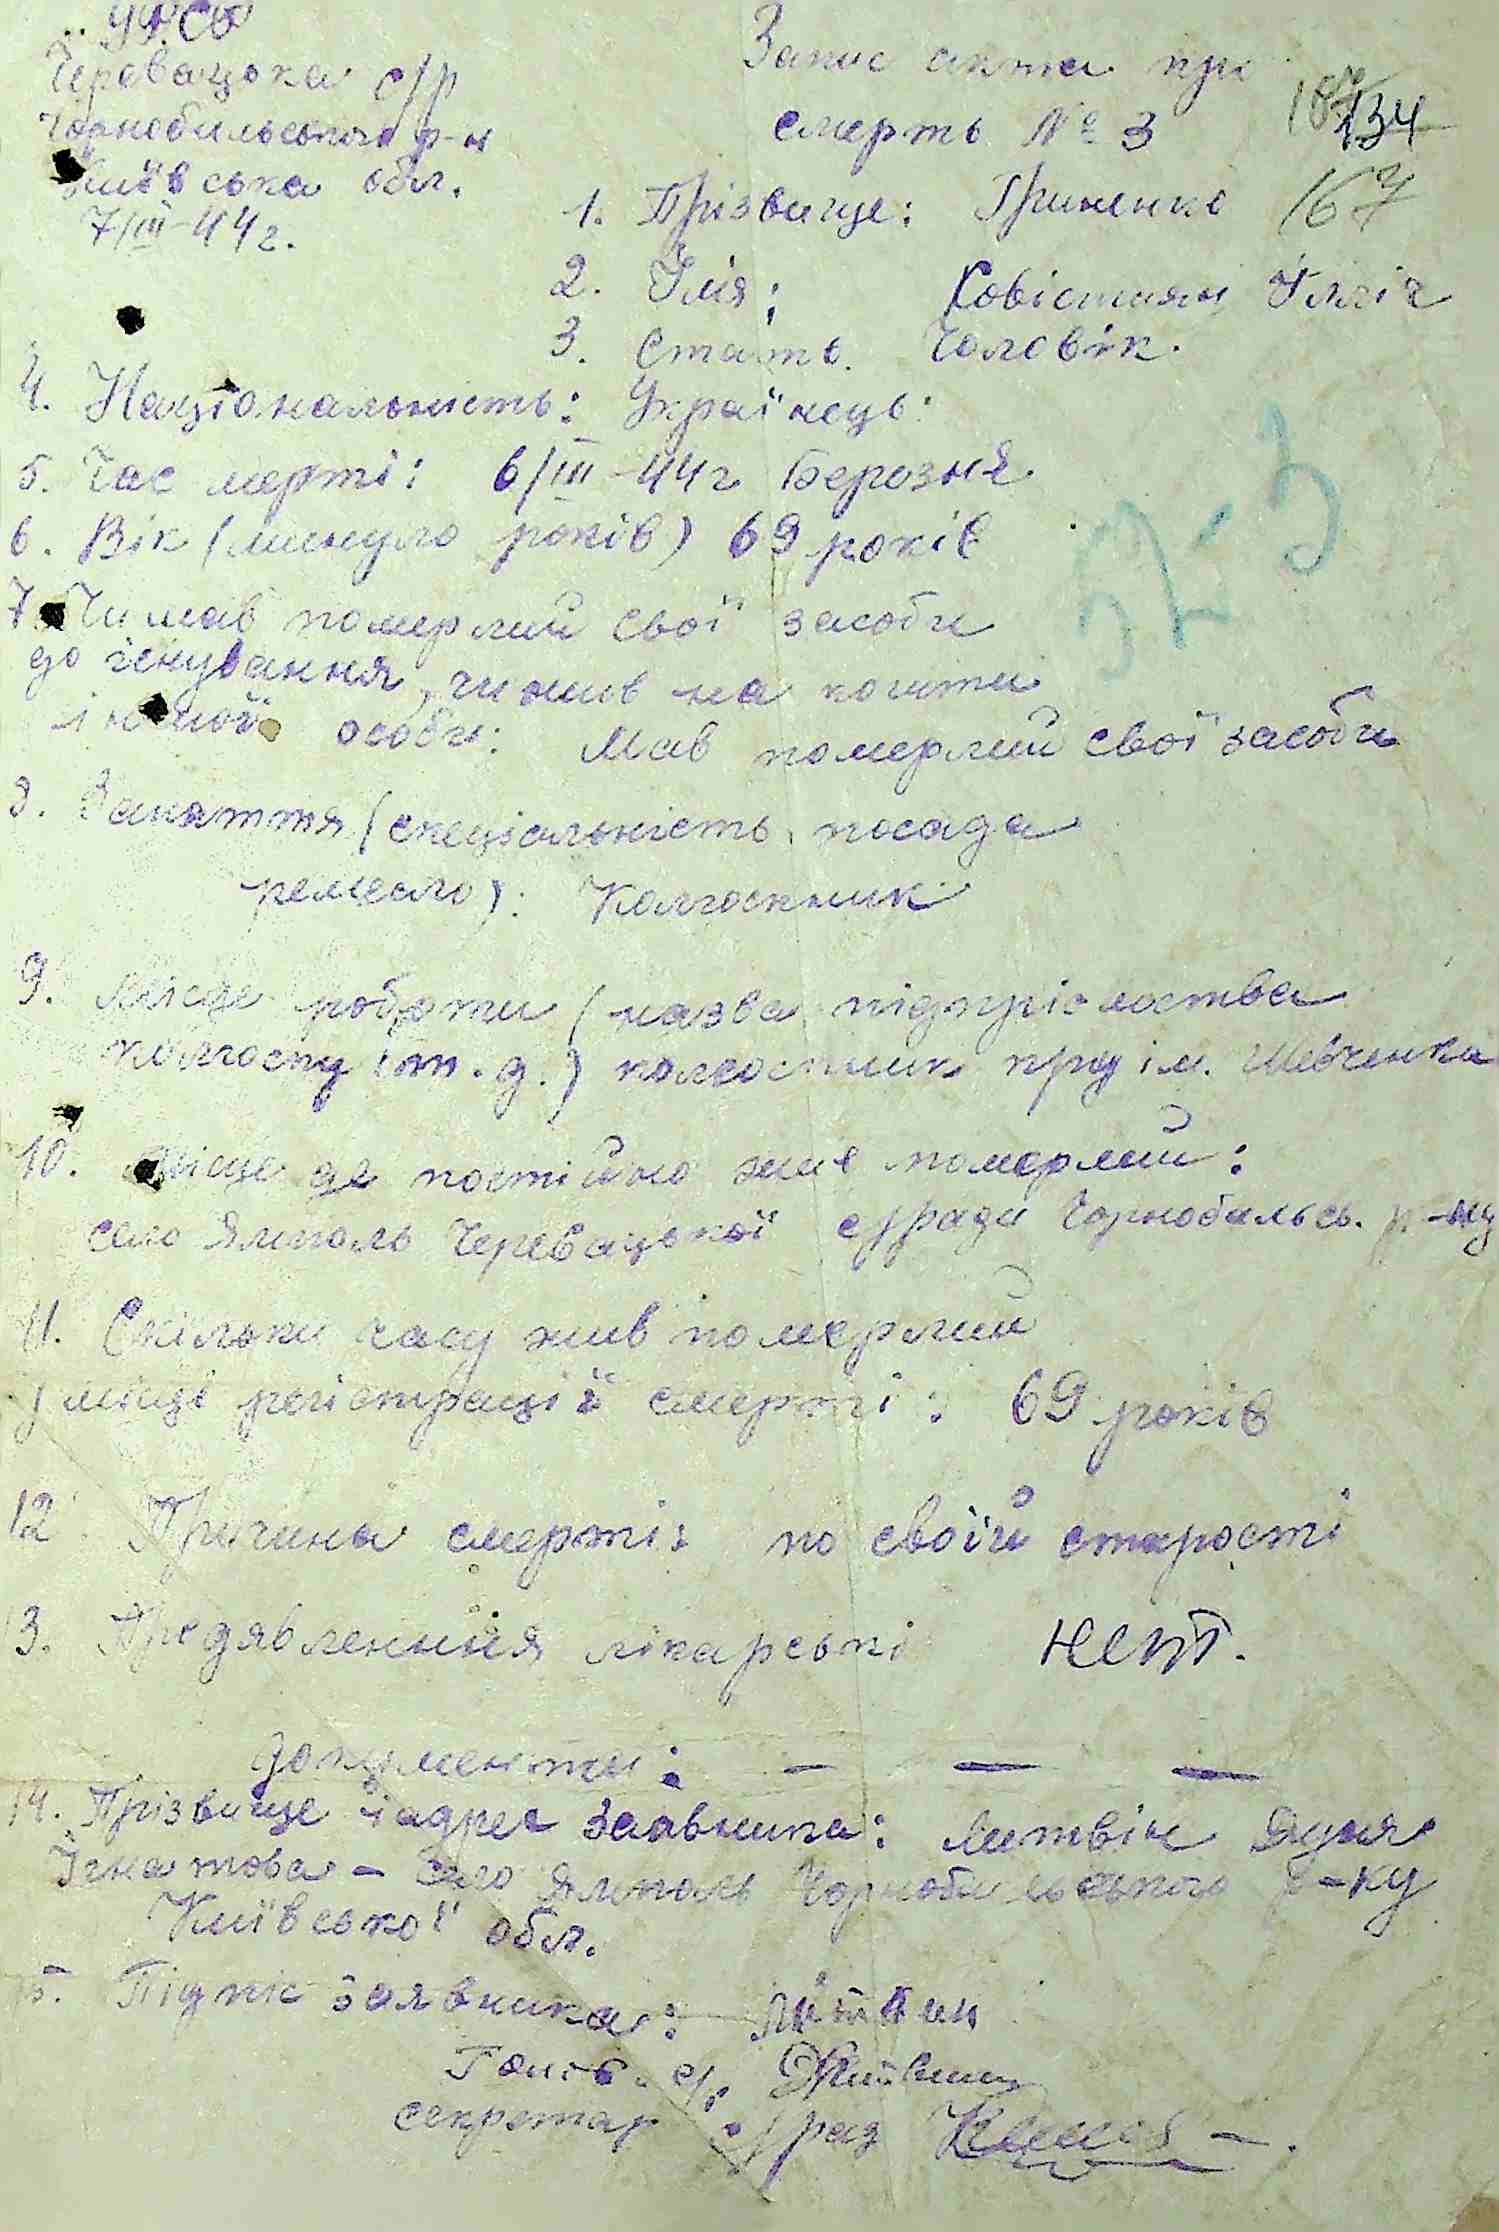 УРСР
Черевацька с/р
Чорнобильського р-н
Київська обл.
7/III-44г.
Запис акта про
смерть № 3
134
167
1. Прізвище: Гриненко
2. Імя: Ковістиян Ілліч
3. Стать. Чоловік.
4. Національність: Українець.
5. Час мерті: 6/III-44г Березня.
6. Вік (минуло років) 69 років
№ 3
7. Чи мав померлий свої засоби
до існування, чи жив на кошти
іншої особи: Мав померлий свої засоби
8. Заняття (спеціальність, посада
ремесло): Колгоспник
9. Місце роботи (назва підпріємства
колгоспу і т. д.) колгоспник при ім. Шевченка
10. Місце де постійно жив померлий:
село Ямполь Черевацької с/ради Чорнобильсь. р-ну
11. Скільки часу жив померлий
у місці регістрації смерті: 69 років
12. Причина смерті: по своїй старості
13. Предявленння лікарські нет.
документи: — — —
14. Прізвище і адрес заявника: Литвін Дуня
Ігнатова - село Ямполь Чорнобильського р-ну
Київської обл.
15. Підпіс заявника: Литвин
Голов. с/р Литвин
секретар с/рад